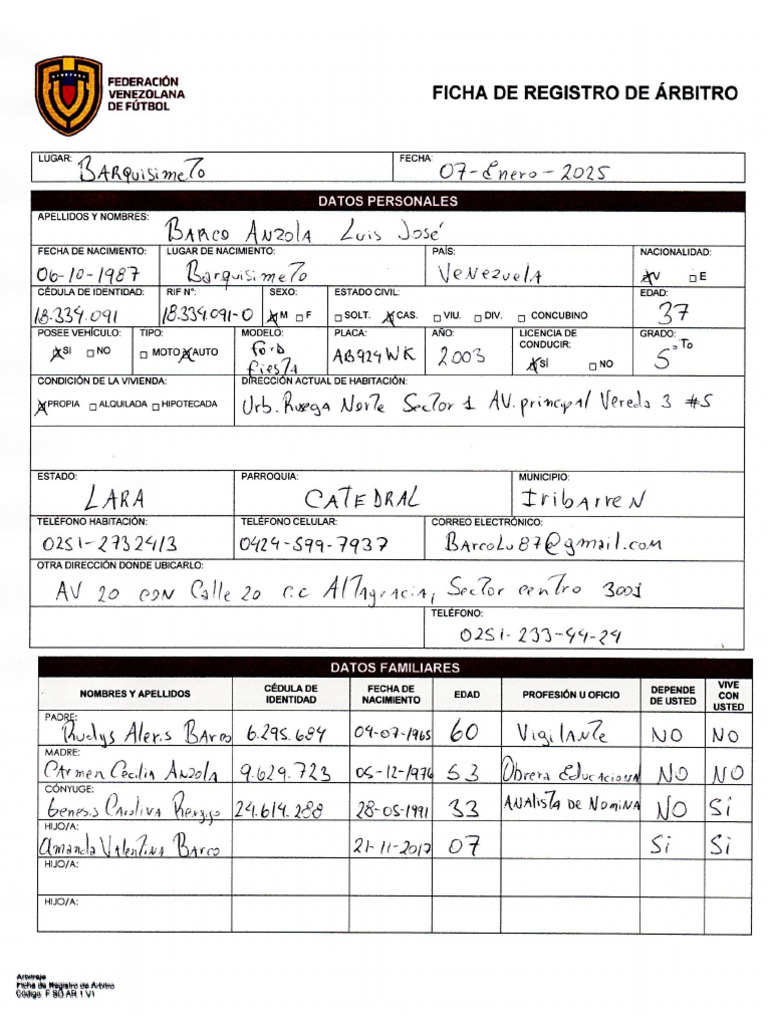 FEDERACIÓN
VENEZOLANA
DE FÚTBOL
FICHA DE REGISTRO DE ÁRBITRO
LUGAR: BARquisimeTo FECHA: 07-Enero-2025
DATOS PERSONALES
APELLIDOS Y NOMBRES: BARCO ANZOLA Luis José
FECHA DE NACIMIENTO: LUGAR DE NACIMIENTO: PAÍS: NACIONALIDAD:
06-10-1987 BarquisimeTo VeNezuelA V E
CÉDULA DE IDENTIDAD: RIF Nº: SEXO: ESTADO CIVIL: EDAD:
18.334.091 18.334.091-0 M F SOLT. CAS. VIU. DIV. CONCUBINO 37
POSEE VEHÍCULO: TIPO: MODELO: PLACA: AÑO: LICENCIA DE CONDUCIR: GRADO:
SI NO MOTO AUTO Ford fiesta AB924WK 2003 SÍ NO 5.To
CONDICIÓN DE LA VIVIENDA: DIRECCIÓN ACTUAL DE HABITACIÓN:
PROPIA ALQUILADA HIPOTECADA Urb. Ruega Norte Sector 1 AV. principal Vereda 3 #5
ESTADO: PARROQUIA: MUNICIPIO:
LARA CATEDRAL IribarreN
TELÉFONO HABITACIÓN: TELÉFONO CELULAR: CORREO ELECTRÓNICO:
0251-2732413 0424-599-7937 BArcoLu87@gmail.com
OTRA DIRECCIÓN DONDE UBICARLO:
AV 20 CON Calle 20 c.c AlTAgracia, Sector centro 3001
TELÉFONO:
0251-233-44-24
DATOS FAMILIARES
NOMBRES Y APELLIDOS CÉDULA DE IDENTIDAD FECHA DE NACIMIENTO EDAD PROFESIÓN U OFICIO DEPENDE DE USTED VIVE CON USTED
PADRE: Alexis BArco 6.295.684 04-07-1965 60 VigilANte NO NO
MADRE: CArmen Cecilia ANzola 9.629.723 05-12-1976 53 Obrera EducacioNal NO NO
CÓNYUGE: Genesis Carolina 24.614.288 28-05-1991 33 ANAlista De NomiNA NO Si
HIJO/A: Amanda Valentina BArco 21-11-2017 07 Si Si
HIJO/A:
HIJO/A:
Arbitraje
Ficha de Registro de Árbitro
Código: F.SO.AR.1.V1